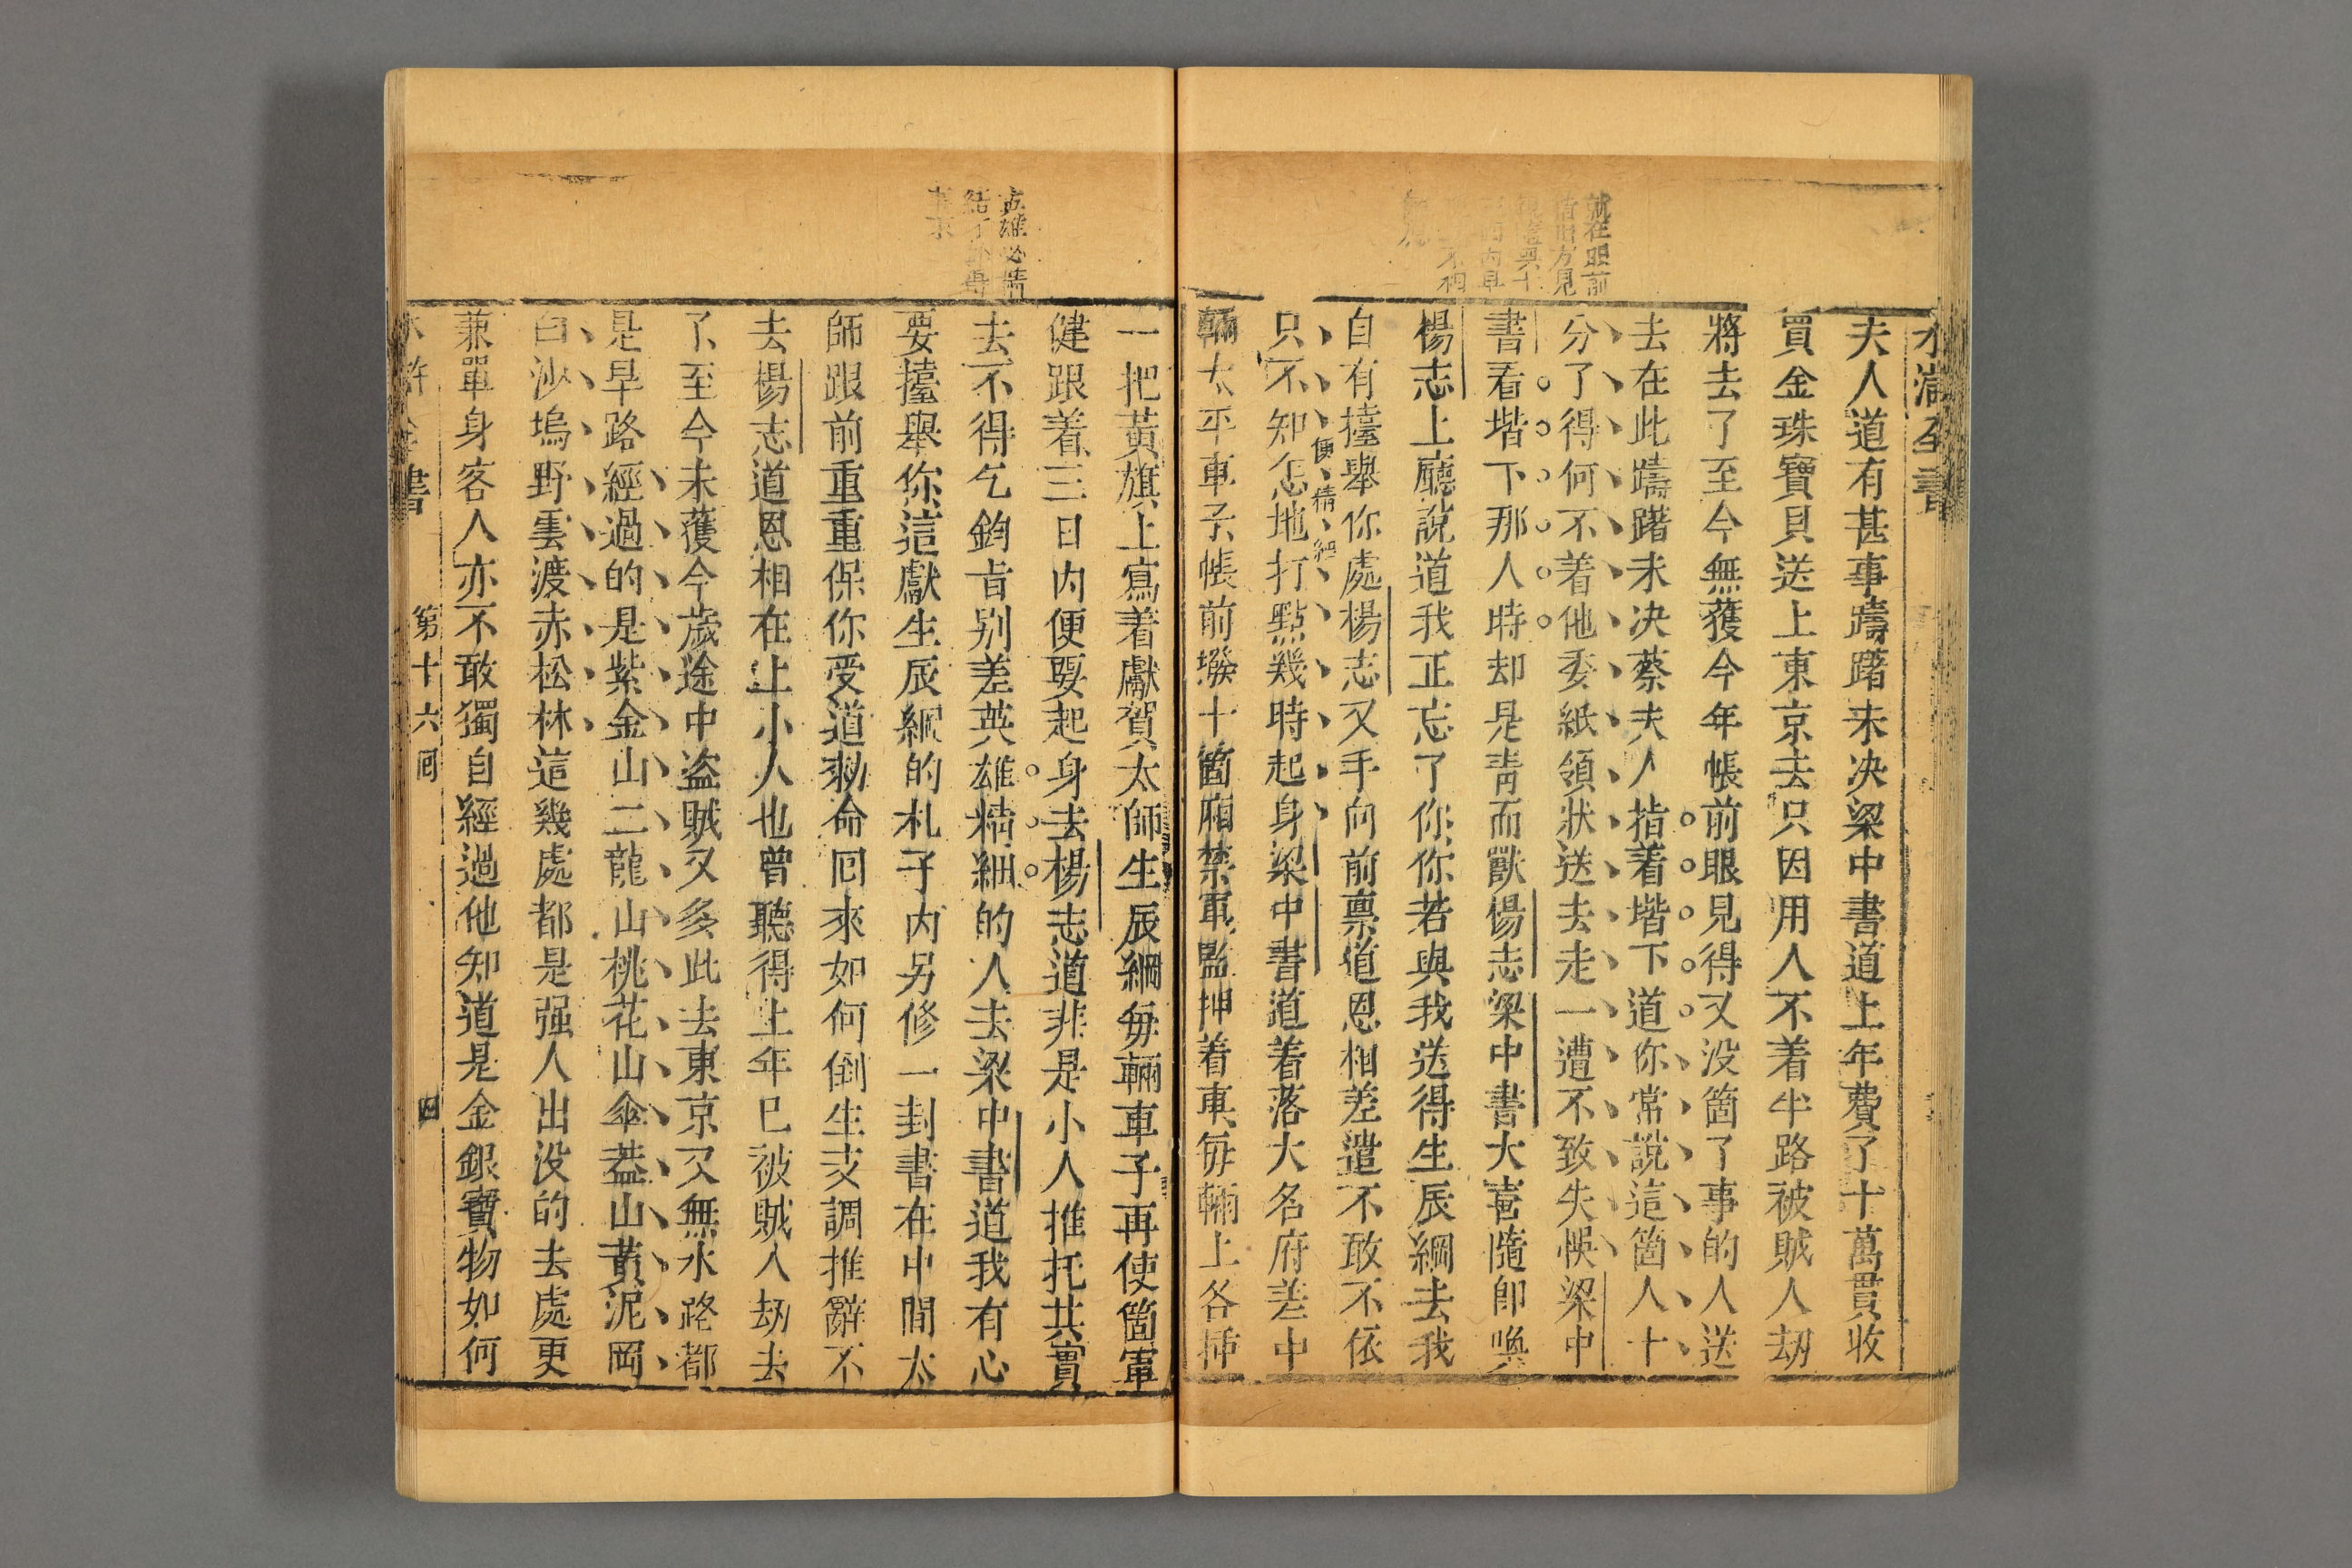 水滸全書
就在眼前
夫人道有甚事躊躇未决梁中書道上年費了十萬貫收
買金珠寶貝送上東京去只因用人不着半路被賊人刼
將去了至今無獲今年帳前眼見得又没箇了事的人送
去在此躊躇未决蔡夫人指着堦下道你常說這箇人十
分了得何不着他委紙領狀送去走一遭不致失悞梁中
書看堦下那人時却是靑面獸楊志梁中書大喜隨卽喚
楊志上廳說道我正忘了你你若與我送得生辰綱去我
自有擡舉你處楊志叉手向前禀道恩相差遣不敢不依
便精細
只不知怎地打點幾時起身梁中書道着落大名府差十
輛太平車子帳前撥十箇廂禁軍監押着車每輛上各揷
英雄必精
一把黃旗上寫着獻賀太師生辰綱每輛車子再使箇軍
健跟着三日内便要起身去楊志道非是小人推托其實
去不得乞鈞旨别差英雄精細的人去梁中書道我有心
要擡舉你這獻生辰綱的札子内另修一封書在中間太
師跟前重重保你受道勑命囘來如何倒生支調推辭不
去楊志道恩相在上小人也曾聽得上年已被賊人刼去
了至今未獲今歲途中盗賊又多此去東京又無水路都
是旱路經過的是紫金山二龍山桃花山傘葢山黃泥岡
白沙塢野雲渡赤松林這幾處都是强人出没的去處更
兼單身客人亦不敢獨自經過他知道是金銀寶物如何
書 第十六囘 四